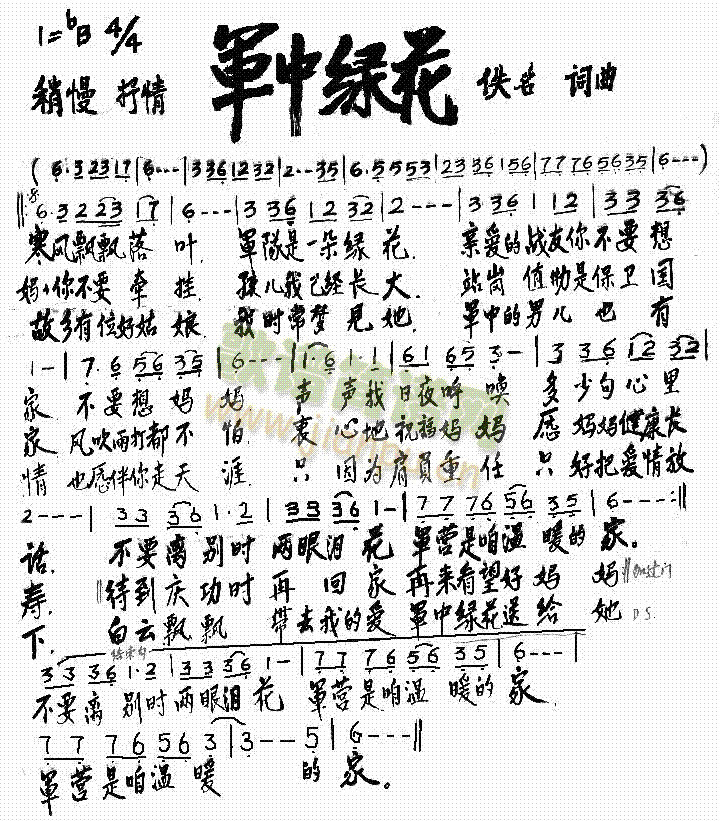 1=♭B 4/4
軍中绿花
稍慢 抒情
佚名 词曲
(6·32317|6---|3361232|2--35|6·5553|2336156|77765635|6---)
𝄋
‖:6·32231 7|6---|336 12 32|2---|336 112|33 36|
寒风飘飘落 叶. 軍隊是一朵绿 花. 亲爱的战友你不要想
妈、你不要 牵 挂. 孩儿我已经长大. 站岗 值勤是保卫国
故乡有位好姑 娘. 我时常梦見她. 軍中的男儿 也 有
1-|7·6 56 35|6---|1·6 1·1|61 65 3-|3 36 12 32|
家. 不要想 妈 妈 声 声我日夜呼 唤 多少句心里
家 风吹雨打都不 怕 衷 心地祝福妈 妈 愿 妈妈健康长
情 也愿伴你走天 涯 只 因为肩負重 任 只 好把爱情放
2---|33 36 1·2|33 36 1-|77 76 56 35|6---:‖
话. 不要离别时 两眼泪 花 軍营是咱温 暖的 家.
寿. ‖待到庆功时再 回 家再来看望好 妈 妈‖
下. 白云飘飘 带去我的爱 軍中绿花送给 她 D.S.
结束句
33 36 1·2|33 36 1-|77 76 56 35|6---|
不要离 别时两眼泪花 軍营是咱温 暖的 家.
77 76 56 3|3--5|6---‖
軍营是咱温 暖 的 家.
歌谱简谱网
www.jianpu.cn